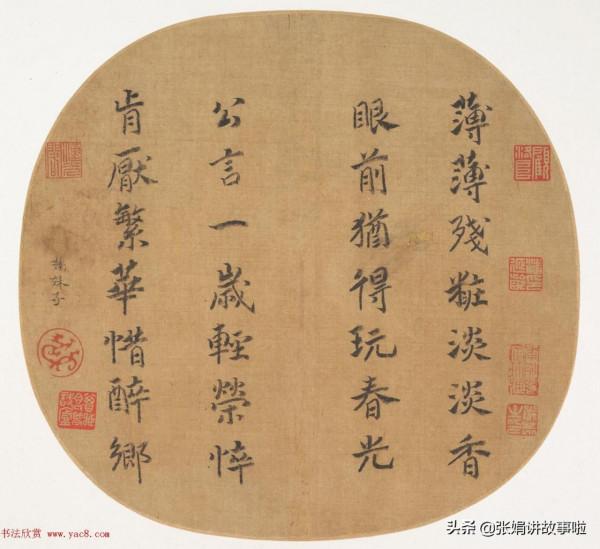 薄薄殘粧淡淡香
眼前猶得玩春光
公言一歲輕榮悴
肯厭繁華惜醉鄉
楊妹子
书法欣赏 www.yac8.com
头条 @张娟讲故事啦